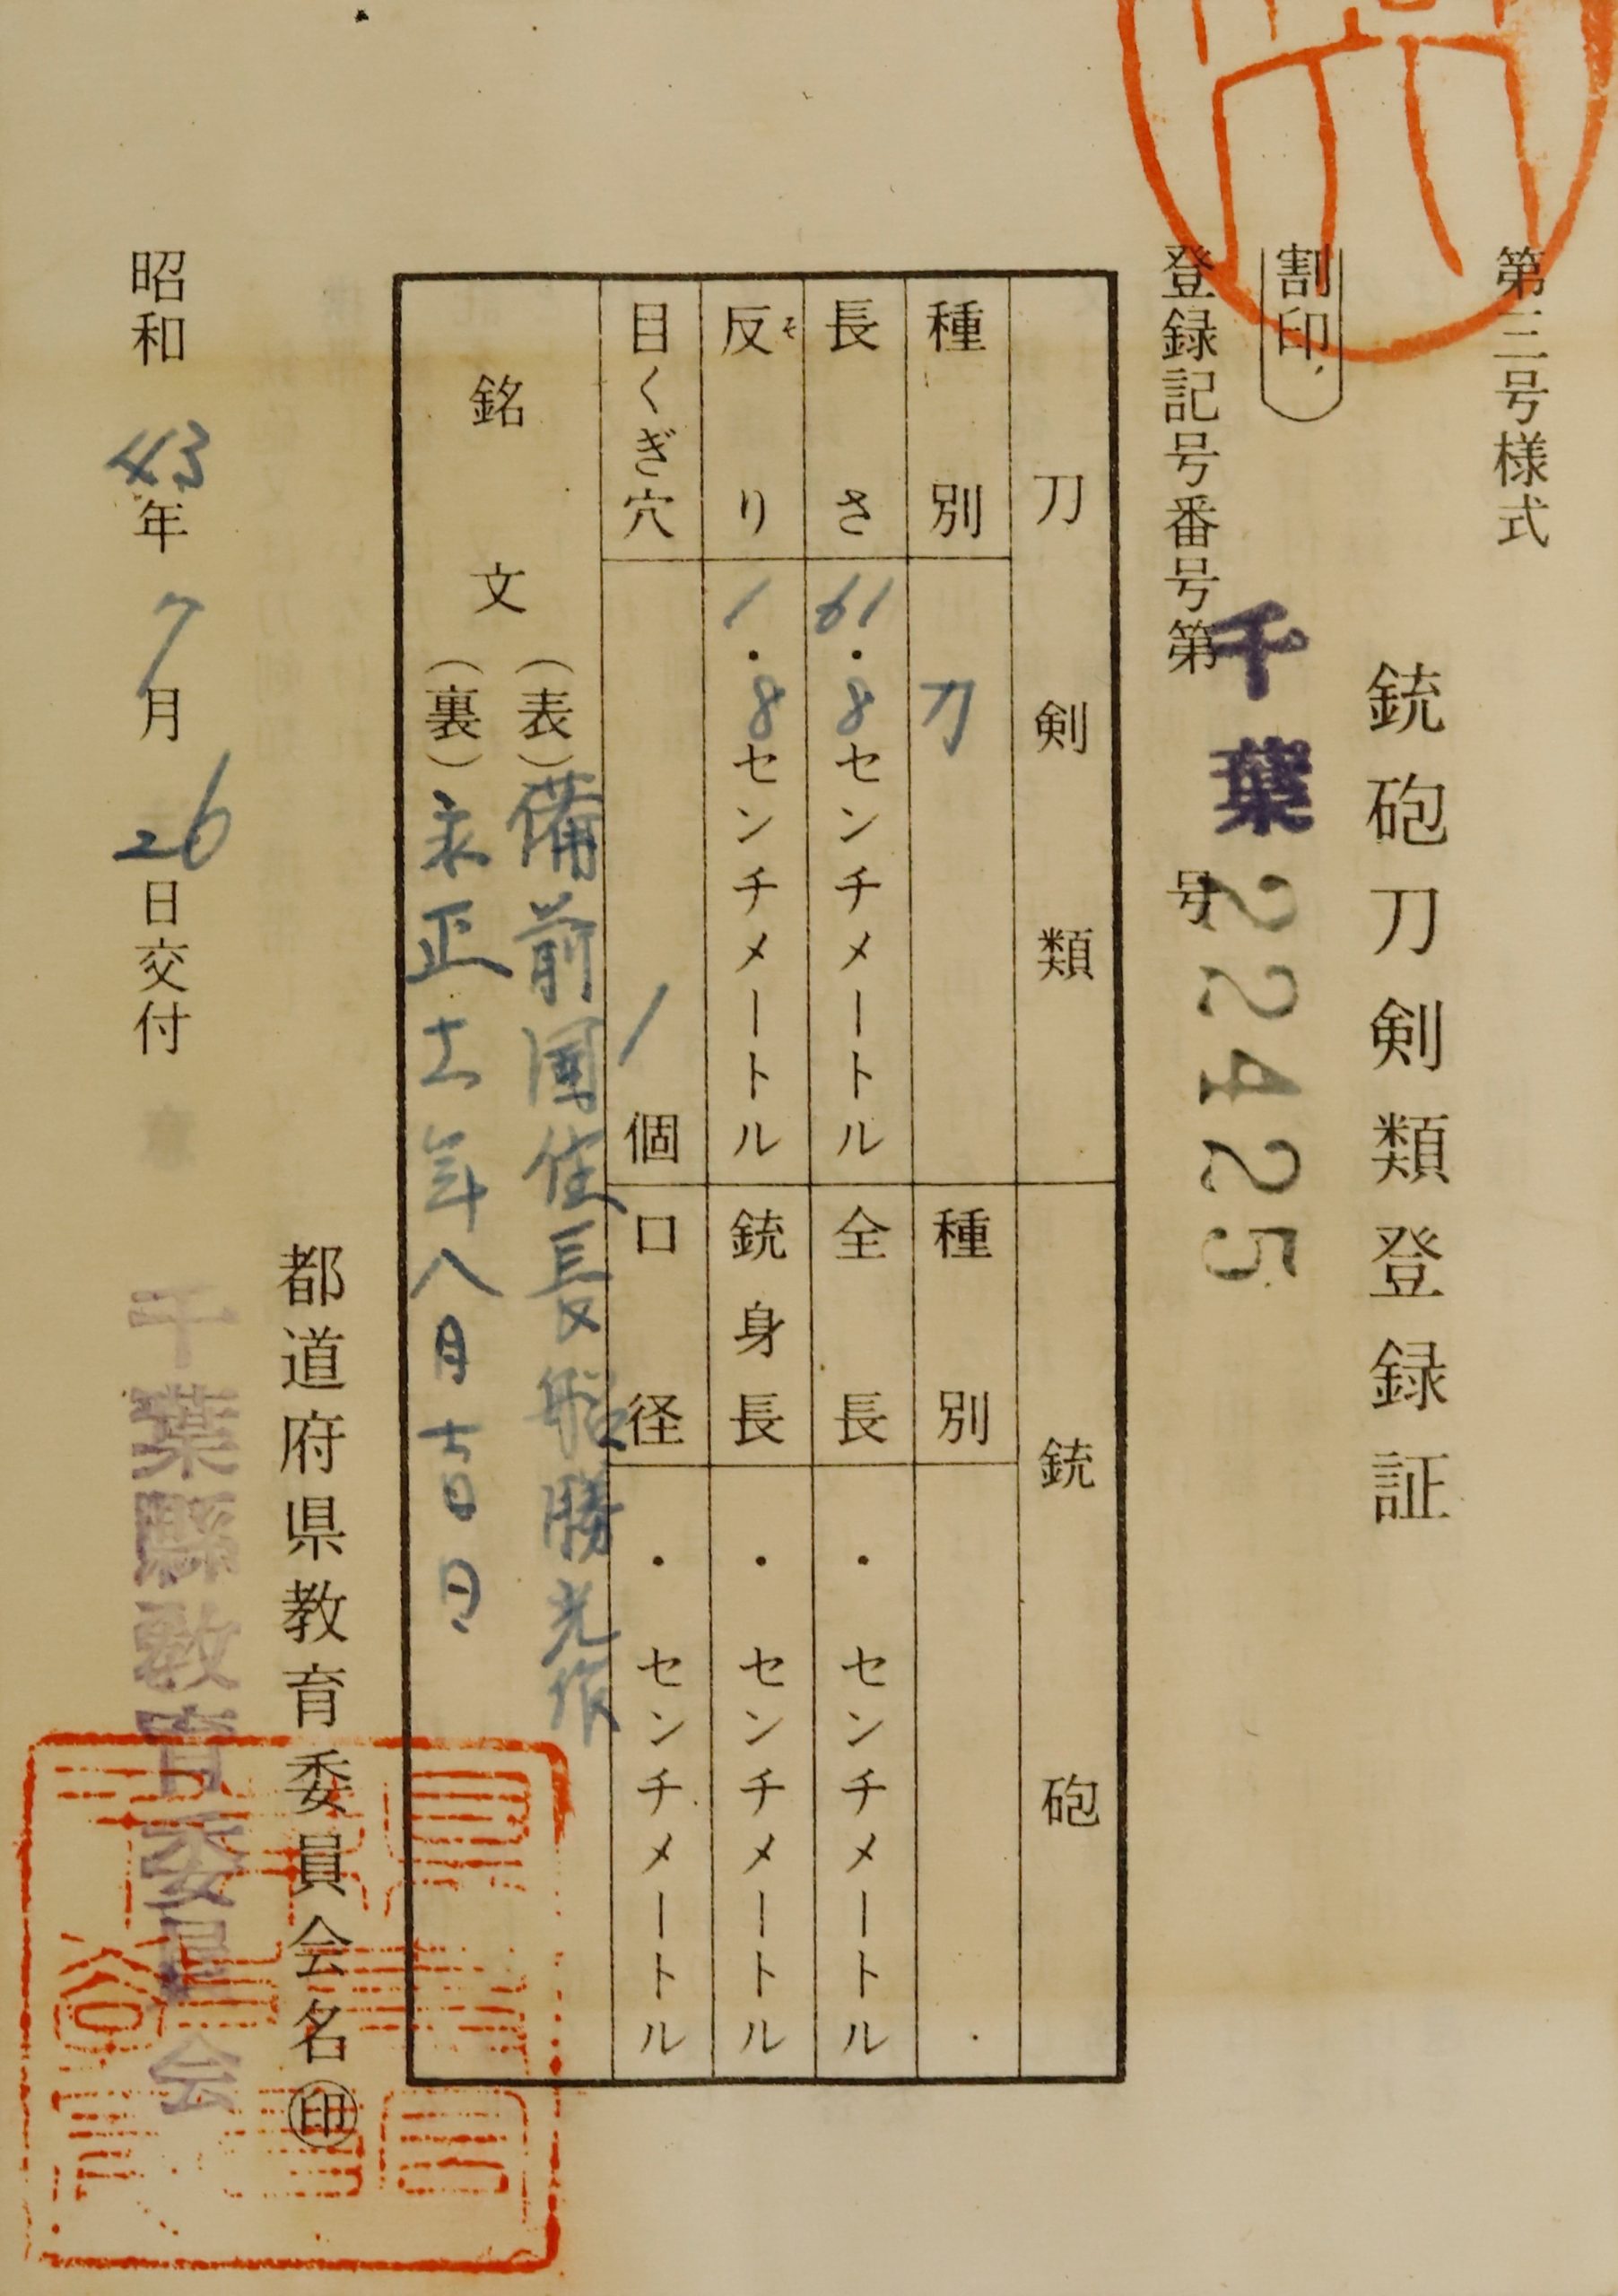 第三号様式
銃砲刀剣類登録証
割印
登録記号番号第千葉22425号
刀剣類
種別 刀
長さ 61.8センチメートル
反り 1.8センチメートル
そ
目くぎ穴 1個
銃砲
種別
全長 ・センチメートル
銃身長 ・センチメートル
口径 ・センチメートル
銘文
(表)備前國住長船勝光作
(裏)永正十一年八月吉日
都道府県教育委員会名㊞
千葉縣教育委員会
昭和43年7月26日交付